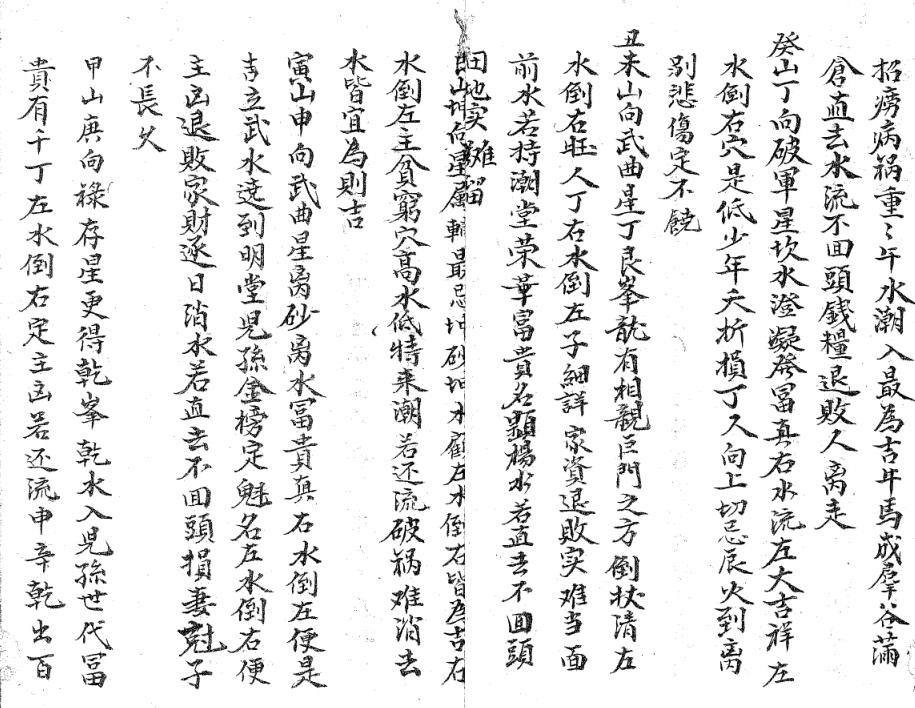 招痨病祸重〻午水潮入最為吉牛馬成羣谷滿
倉直去水流不囬頭錢糧退敗人离走
癸山丁向破軍星坎水澄凝發冨真右水流左大吉祥左
水倒右穴是低少年夭折損丁人向上切忌辰火到离
别悲傷定不饒
丑未山向武曲星丁艮峯龍有相親巨門之方倒状清左
水倒右旺人丁右水倒左子細詳家資退敗实难当面
前水若持潮堂荣華富貴名顯楊水若直去不囬頭
田地实難留
山坤向星屬輔最忌坤砂坤水顧左水倒右皆為吉右
水倒左主貧窮穴高水低特来潮若还流破祸难消去
水皆宜為則吉
寅山申向武曲星离砂离水冨貴真右水倒左便是
吉立武水遶到明堂児孫金榜定魁名左水倒右便
主凶退敗家財逐日消水若直去不囬頭損妻尅子
不長久
甲山庚向祿存星更得乾峯乾水入児孫世代冨
貴有千丁左水倒右定主凶若还流申辛乾出百